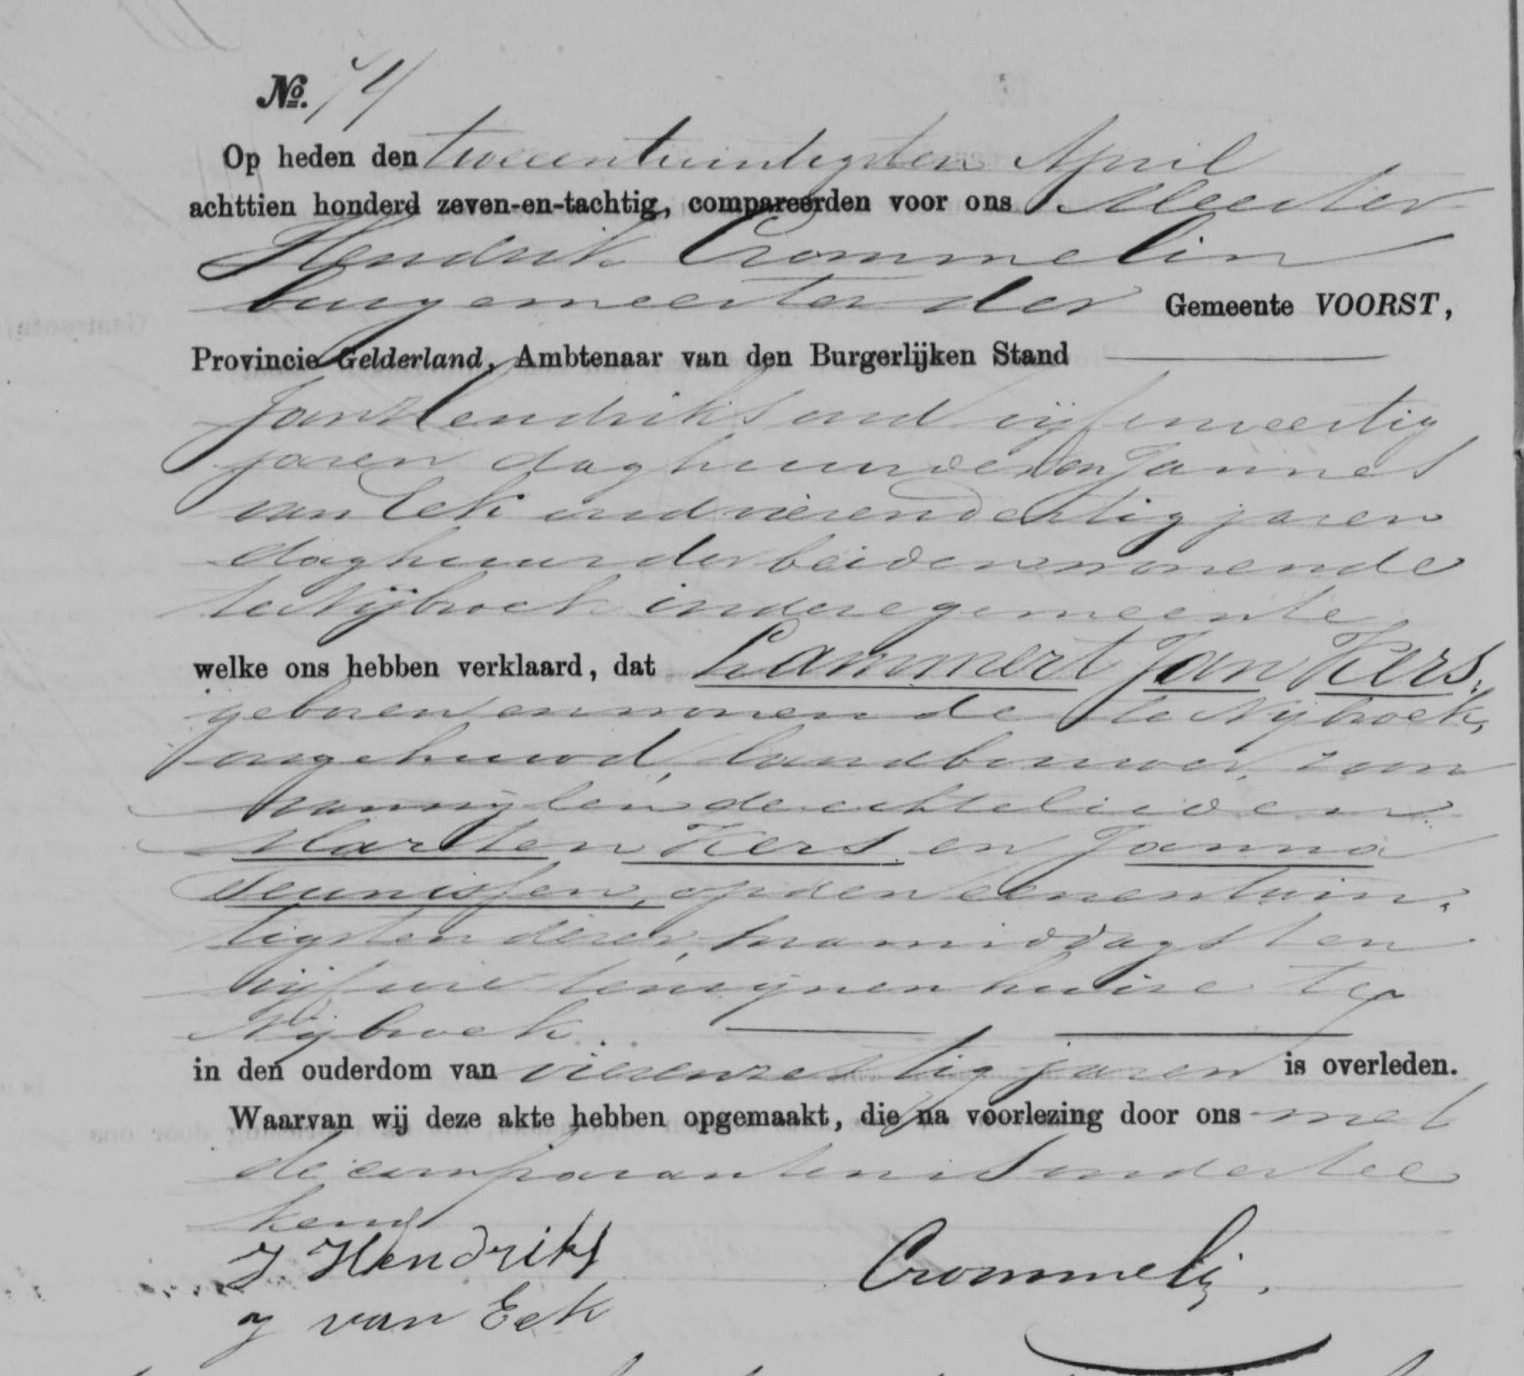 No. 74
Op heden den tweeentwintigsten April
achttien honderd zeven-en-tachtig, compareerden voor ons Meester
Hendrik Crommelin
burgemeester der Gemeente VOORST,
Provincie Gelderland, Ambtenaar van den Burgerlijken Stand
Jan Hendriks oud vijfenveertig
jaren daghuurder en Jannes
van Eek oud vierendertig jaren
daghuurder beiden wonende
te Nijbroek in deze gemeente
welke ons hebben verklaard, dat Lammert Jan Kers,
geboren en wonende te Nijbroek,
ongehuwd, landbouwer, zoon
van wijlen de echtelieden
Marten Kers en Janna
Teunissen, op den eenentwin-
tigsten dezer, namiddags ten
vijf ure te zijnen huize te
Nijbroek
in den ouderdom van vierenzestig jaren is overleden.
Waarvan wij deze akte hebben opgemaakt, die na voorlezing door ons met
de comparanten is ondertee
kend
J Hendriks Crommelin.
J van Eek